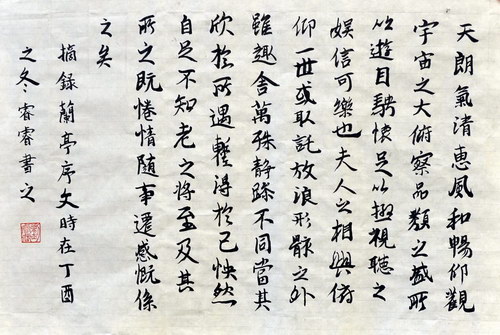 天朗氣清惠風和暢仰觀
宇宙之大俯察品類之盛所
以遊目騁懷足以極視聽之
娛信可樂也夫人之相與俯
仰一世或取託放浪形骸之外
雖趣舍萬殊静躁不同當其
欣於所遇暫得於己怏然
自足不知老之將至及其
所之既惓情随事遷感慨係
之矣
摘録蘭亭序文時在丁酉
之冬睿睿書之